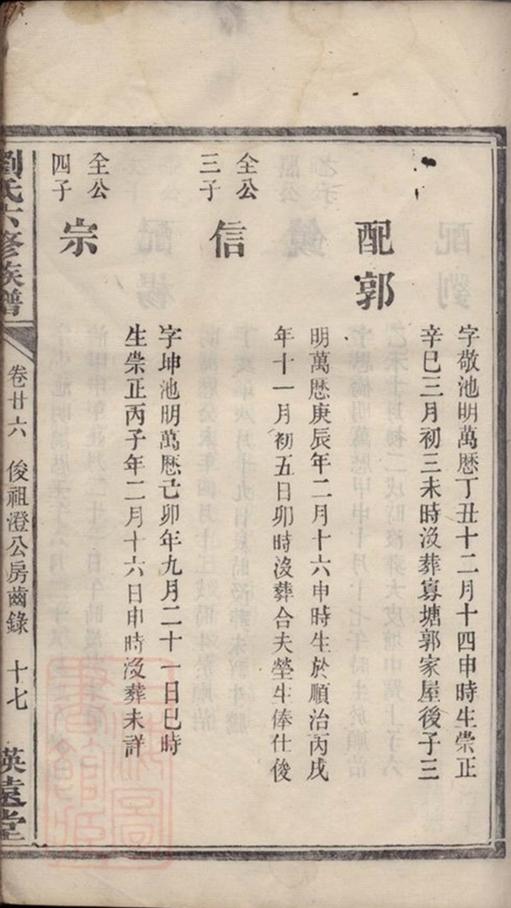 字敬池明萬歷丁丑十二月十四申時生崇正
辛巳三月初三未時沒葬寡塘郭家屋後子三
配郭
明萬歷庚辰年二月十六申時生於順治丙戌
年十一月初五日卯時沒葬合夫塋生俸仕俊
全公
三子
信
字坤池明萬歷己卯年九月二十一日巳時
生崇正丙子年二月十六日申時沒葬未詳
全公
四子
宗
劉氏六修族譜
卷廿六
俊祖澄公房齒錄
十七
瑛遠堂